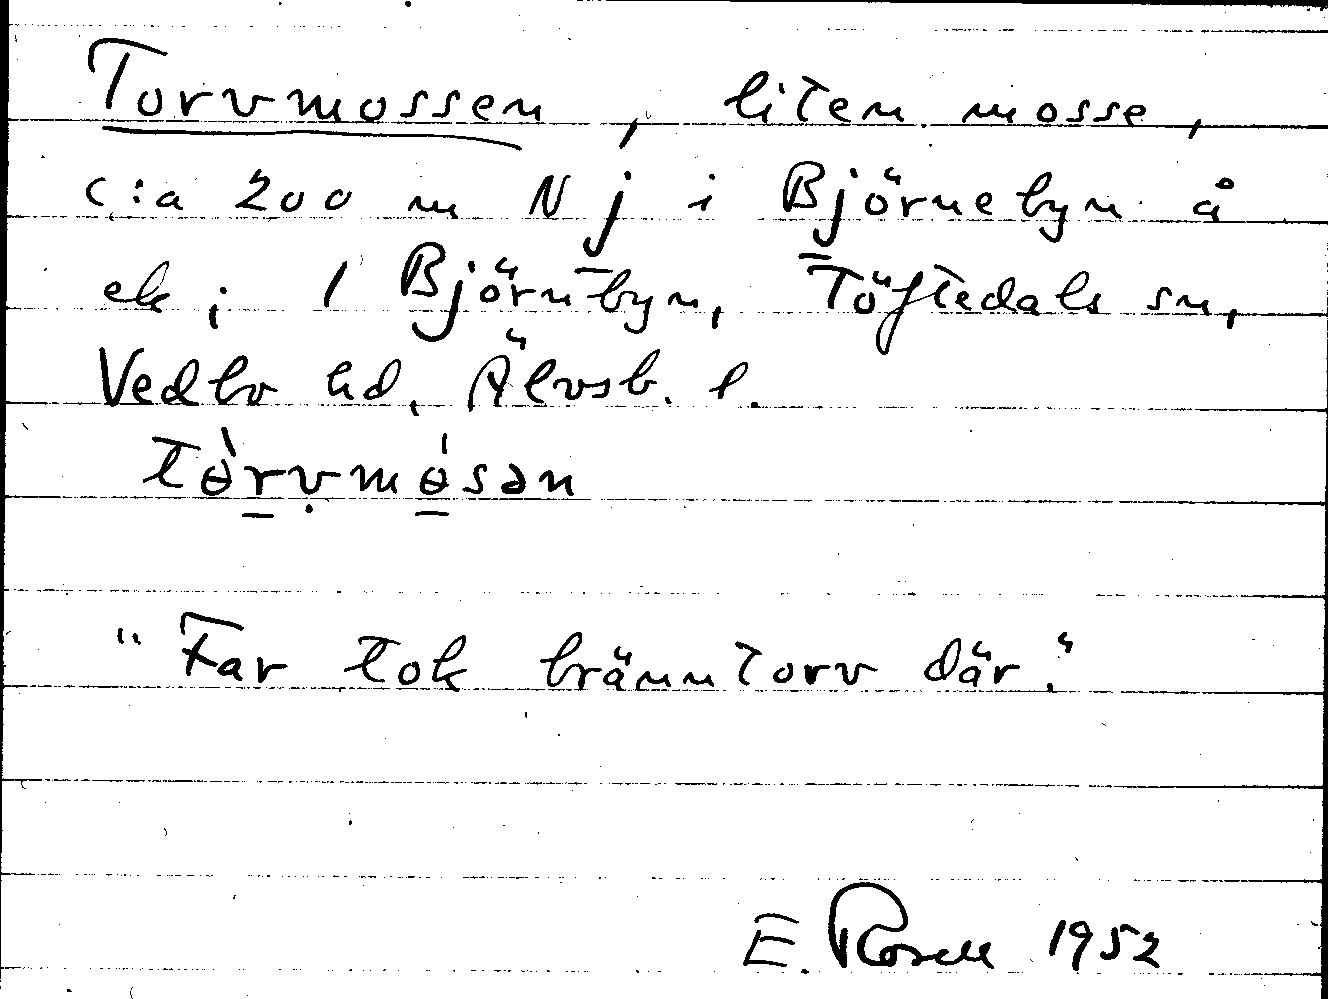 Torvmossen, liten mosse,
c:a 200 m N j i Björnebyn å
ek; 1 Björnbyn, Töftedals sn,
Vedbo hd, Älvsb. l.
tɵ̀rv̥mɵ́sən
"Far tok bränntorv där."
E. Rosell 1952